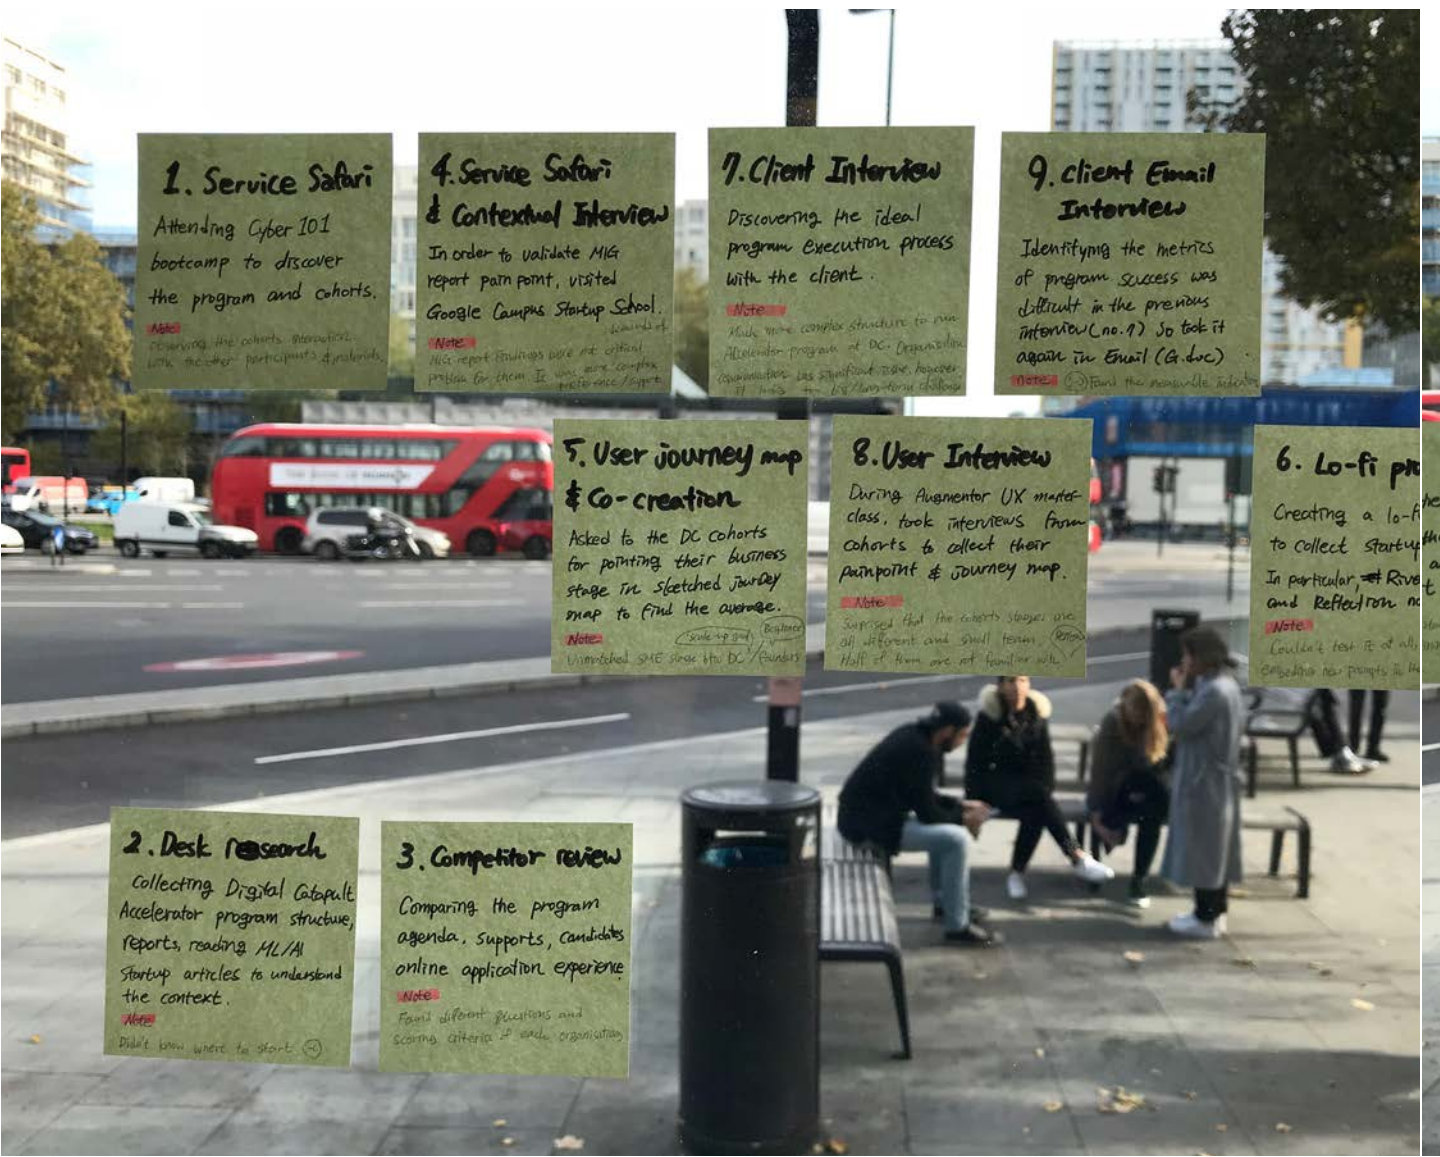 1. Service Safari
Attending Cyber 101
bootcamp to discover
the program and cohorts.
Note
observing the cohorts interaction
with the other participants & materials.
4. Service Safari
& Contextual Interview
In order to validate MIG
report pain point, visited
Google Campus Startup School.
Note
MIG report findings were not critical
problem for them It was more complex
preference/support
7. Client Interview
Discovering the ideal
program execution process
with the client.
Note
Much more complex structure to run
Accelerator program at DC. Organisation
communication was significant issue, however
it looks too big/long-term challenge
9. client Email
Interview
Identifying the metrics
of program success was
difficult in the previous
interview (no.7) So took it
again in Email (G.doc)
note :) Found the measurable
5. User journey map
& Co-creation
Asked to the DC cohorts
for pointing their business
stage in sketched journey
map to find the average.
Note
Scale-up Beginner
Unmatched SME stage btw DC / founders
8. User Interview
During Augmentor UX master
class, took interviews from
cohorts to collect their
painpoint & journey map.
Note
Surprised that the cohorts stages are
all different and small team.
Half of them are not familiar with
6. Lo-fi pro
Creating a lo-f
to collect startup
In particular, Rive
and Reflection no
Note
Couldn't test it at all,
embedding new prompts in the
2. Desk research
Collecting Digital Catapult
Accelerator program structure,
reports, reading ML/AI
Startup articles to understand
the context.
Note
Didn't know where to start
3. Competitor review
Comparing the program
agenda, supports, candidates
online application experience
Note
Found different questions and
scoring criteria of each organisation